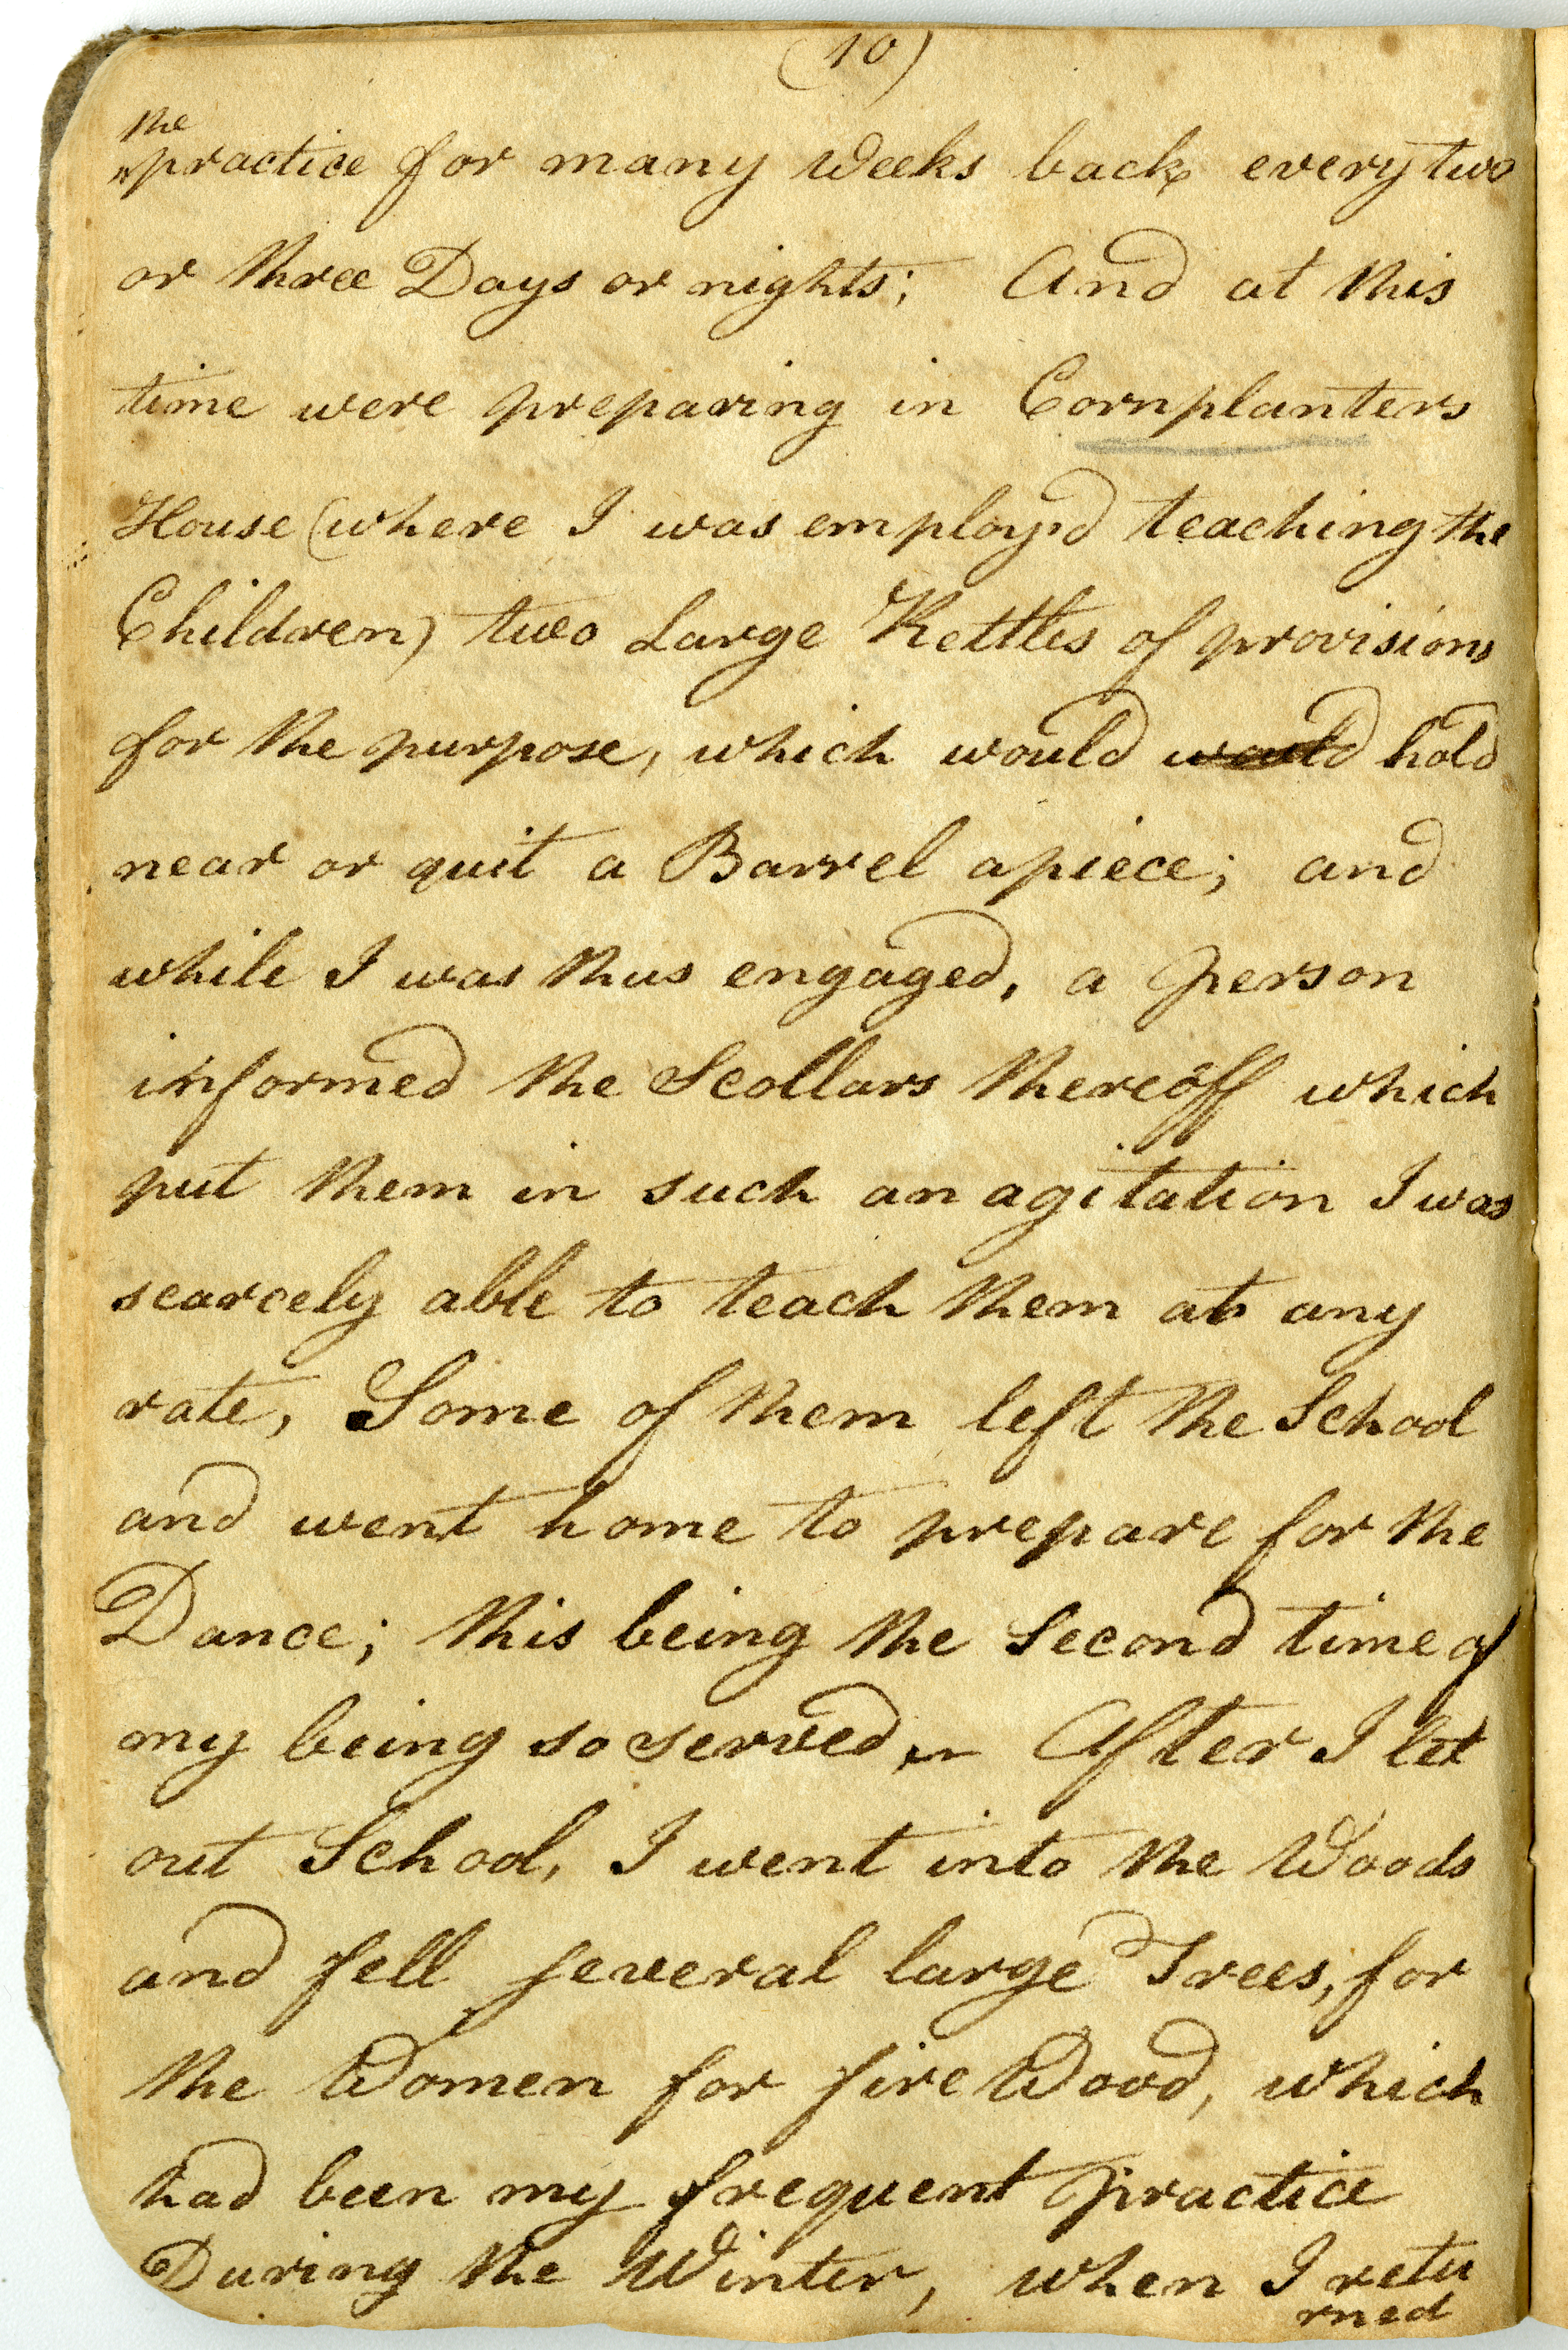 (10)
the
practice for many Weeks back every two
or three Days or nights; And at this
time were preparing in Cornplanters
House (where I was employ'd teaching the
Children) two Large Kettles of provisions
for the purpose, which would would hold
near or quit a Barrel apiece; and
while I was thus engaged, a person
informed the Scollars thereoff which
put them in such an agitation I was
scarcely able to teach them at any
rate, Some of them left the School
and went home to prepare for the
Dance; this being the Second time of
my being so served, After I let
out School, I went into the Woods
and fell several large Trees, for
the Women for fire Wood, which
had been my frequent practice
During the Winter, when I retu
rned